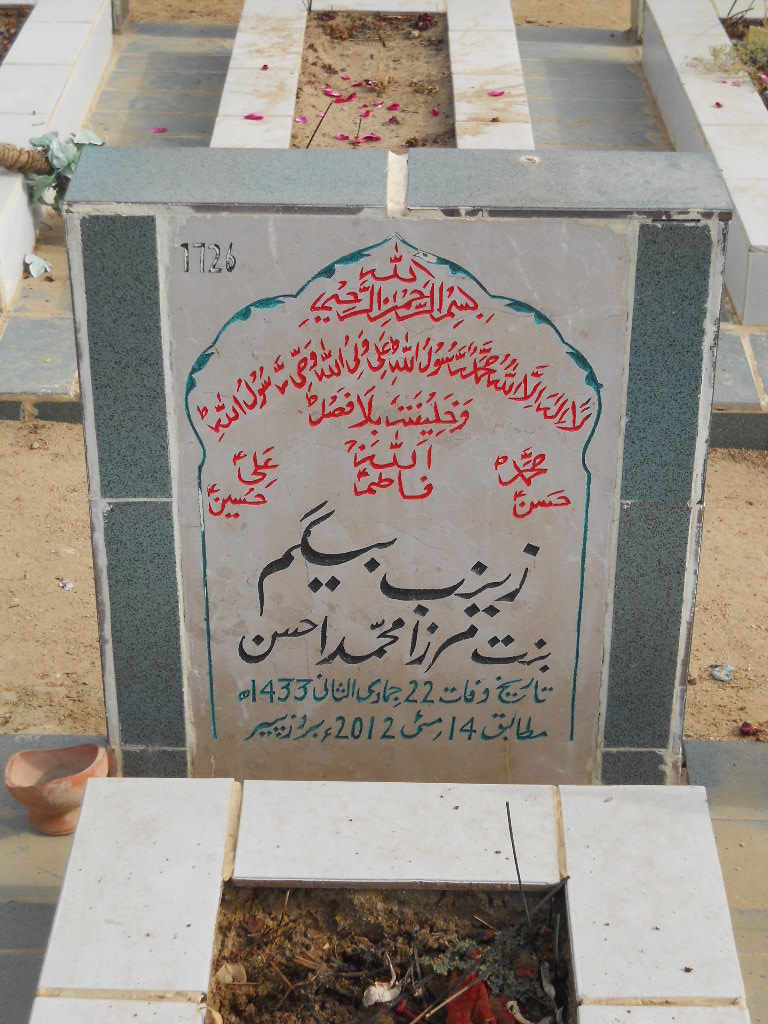 1726
الله
بسم الرحمن الرحيم
لا اله الا الله محمد رسول الله علی ولی الله وصی رسول الله
وخلیفتہ بلا فصل
محمد الله علی
حسن فاطمہ حسین
زینب بیگم
بنت مرزا محمد احسن
تاریخ وفات 22 جمادی الثانی 1433ھ
مطابق 14 مئی 2012ء بروز پیر